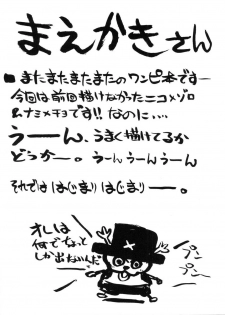 まえがきさん
■またまたまたまたのワンピ本ですー
今回は前回描けなかったニコメゾロ
&ナミメチョです!!なのに…
うーん、うまく描けてるか
どっかー。うーんうーんうーん
それでははじまりはじまりー。
オレは
何でちょっと
しか出ないんだ
プン
プンー